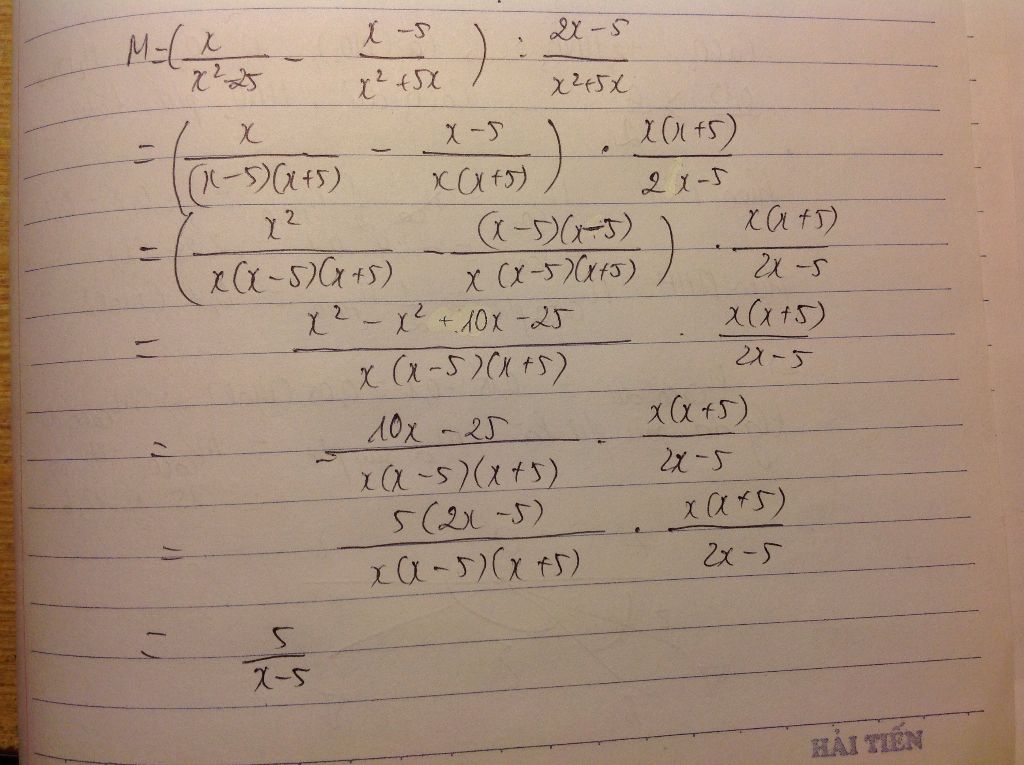 M=(x/(x²-25) - (x-5)/(x²+5x)) : (2x-5)/(x²+5x)
= (x/((x-5)(x+5)) - (x-5)/(x(x+5))) · x(x+5)/(2x-5)
= (x²/(x(x-5)(x+5)) - (x-5)(x-5)/(x(x-5)(x+5))) · x(x+5)/(2x-5)
= (x² - x² + 10x - 25)/(x(x-5)(x+5)) · x(x+5)/(2x-5)
= = (10x - 25)/(x(x-5)(x+5)) · x(x+5)/(2x-5)
= 5(2x-5)/(x(x-5)(x+5)) · x(x+5)/(2x-5)
= 5/(x-5)
HẢI TIẾN